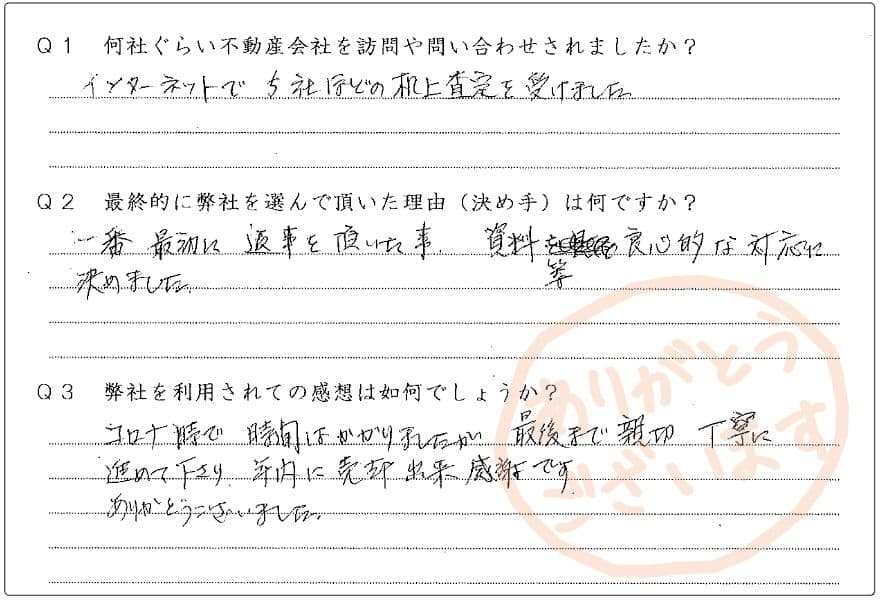 Q1 何社ぐらい不動産会社を訪問や問い合わせされましたか？
インターネットで 5社ほどの机上査定を受けました。
Q2 最終的に弊社を選んで頂いた理由（決め手）は何ですか？
一番 最初に 返事を頂いた事、資料等 良心的な対応に
決めました。
Q3 弊社を利用されての感想は如何でしょうか？
コロナ時で 時間はかかりましたが 最後まで 親切 丁寧に
進めて下さり、年内に売却出来 感謝です。
ありがとうございました。
ありがとう
ございます